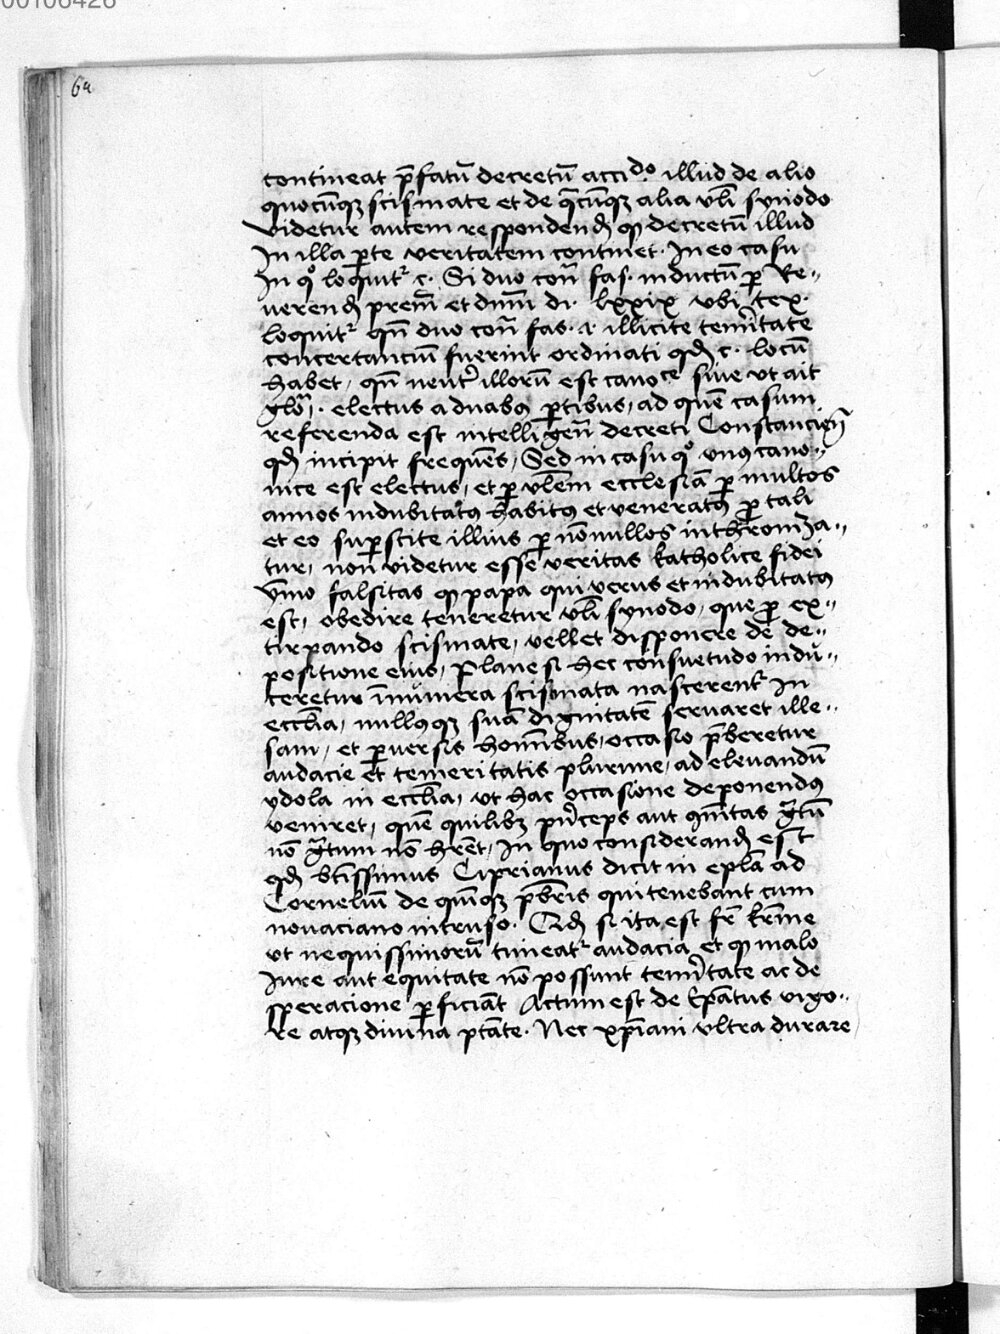 00106426
64
contineat p̄fatū decretū acci do illud de alio
quocūqꝫ scismate et de q̄cūqꝫ alia vl̄i synodo
videtur autem respondend̄ qꝫ decretū illud
In illa ꝑte veritatem continet In eo casu
In qͦ loquitᷣ c. Si duo con̄ fas. inductū ꝑ Re-
verend̄ prem̄ et dnm̄ di. lxxix vbi tex.
loquitᷣ qn̄ duo con̄ fas. a. illicite tem̄itate
concertanciū fuerint ordinati qd̄ c. locū
habet, qn̄ neutᷣ illorū est canoce siue vt ait
glo. electus a duabꝯ ꝑtibus, ad quē casum
referenda est intelligen̄ decreti Constancien̄
qd̄ incipit frequēs, Sed in casu qͦ vnꝯ cano-
nice est electus, et ꝑ vlēm ecclesiā ꝑ multos
annos indubitatꝯ habitꝯ et veneratꝯ ꝓ tali
et eo suꝑstite illius ꝑ nōnullos inthroniza-
tur, non videtur esse veritas katholice fidei
ymo falsitas qꝫ papa qui verus et indubitatꝯ
est, obedire teneretur vl̄i synodo, que ꝓ ex-
tirpando scismate, vellet disponere de de-
positione eius, Plane si hec consuetudo indu-
ceretur īnumera scismata nascerentᷣ In
eccl̄ia, nullꝯqꝫ suā dignitatē seruaret ille-
sam, et ꝑuersis hominibus, occasio p̄beretur
audacie et temeritatis plurime, ad eleuandū
ydola in eccl̄ia, vt hac occasione deponendꝯ
veniret, quē quilibꝫ pn̄ceps aut qm̄itas gr̄tū
nō gr̄tum nō hr̄et, In quo considerand̄ est
qd̄ btissimus Ciprianus dicit in epl̄a ad
Corneliū de quīqꝫ p̄bris qui tenebant cum
nouaciano intruso. Qd̄ si ita est fr̄ kr̄me
vt nequissimorū timeatᷣ audacia et qꝫ malo
Iure aut equitate nō possunt tem̄itate ac de
speracione ꝑficiāt Actum est de ep̄atus vigo-
re atqꝫ diuina ptāte. Nec xp̄iani vltra durare